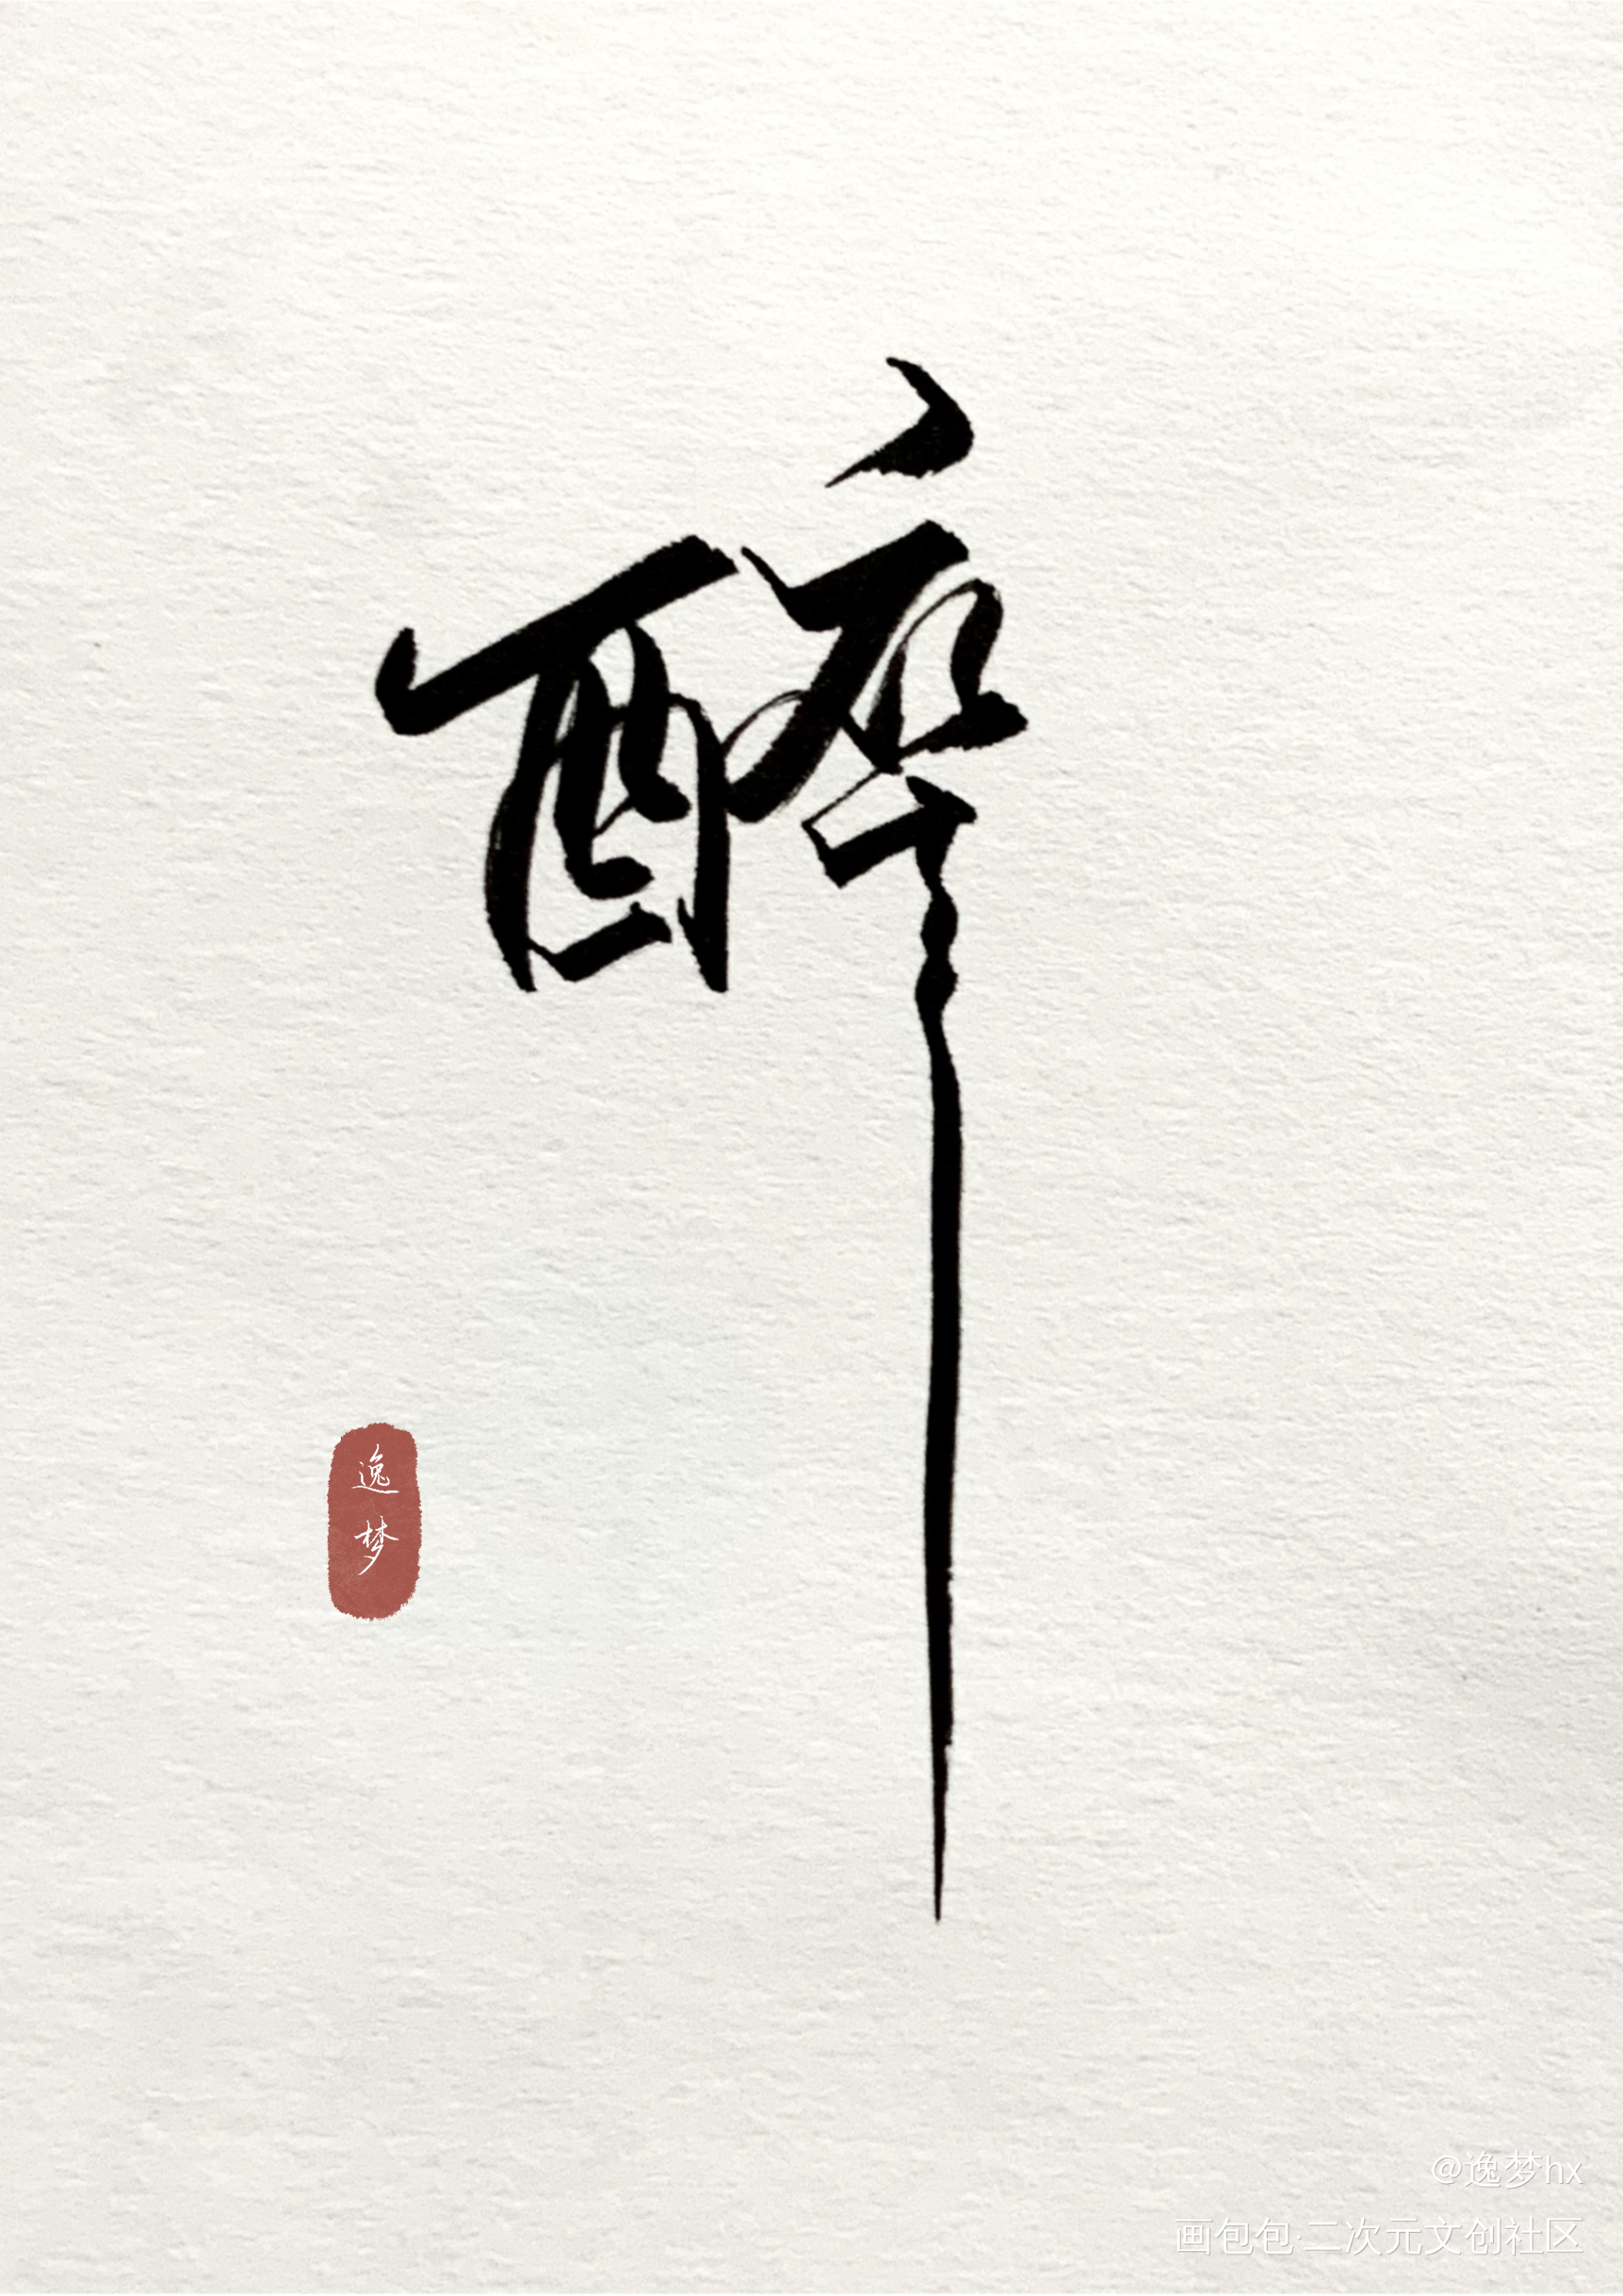 醉
逸梦
@逸梦hx
画包包·二次元文创社区